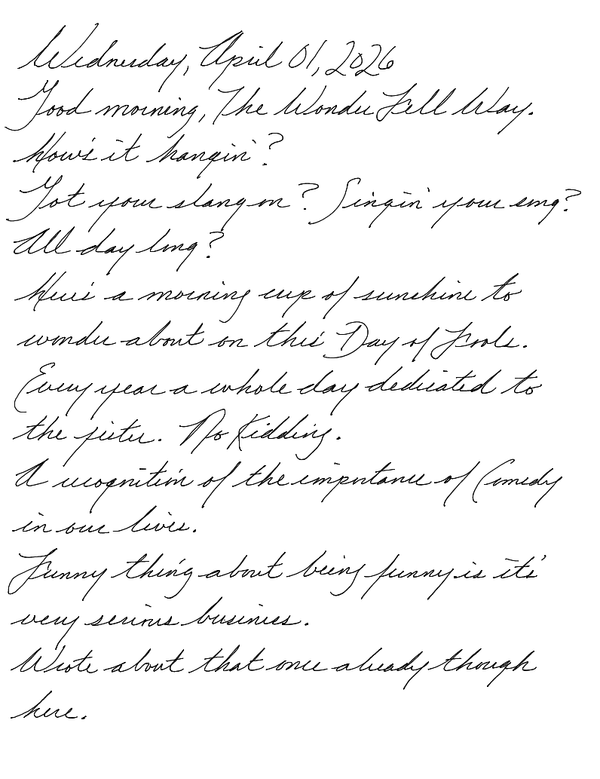 Wednesday, April 01, 2026
Good morning, The WonderFell Way.
How's it hangin'?
Got your slang on? Singin' your song?
All day long?
Here's a morning cup of sunshine to
wonder about on this Day of Fools.
Every year a whole day dedicated to
the jester. No Kidding.
A recognition of the importance of Comedy
in our lives.
Funny thing about being funny is it's
very serious business.
Wrote about that once already though
here.